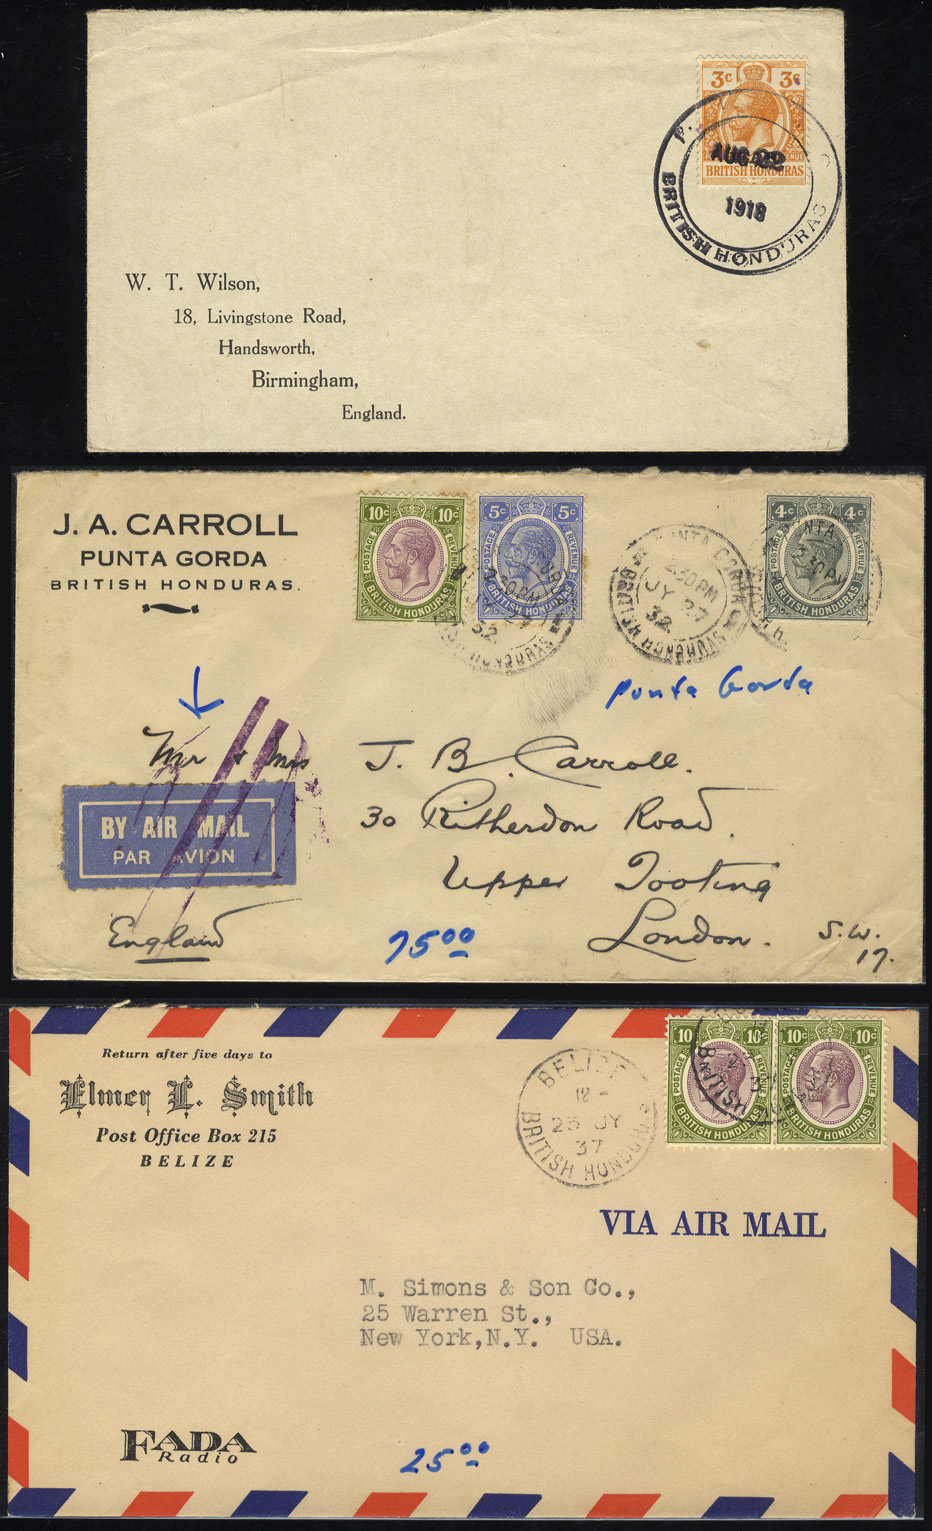 3c 3c
BRITISH HONDURAS
P.
AUG 22
1918
BRITISH HONDURAS
W. T. Wilson,
18, Livingstone Road,
Handsworth,
Birmingham,
England.
J. A. CARROLL
PUNTA GORDA
BRITISH HONDURAS.
10c 10c
POSTAGE REVENUE
BRITISH HONDURAS
5c 5c
POSTAGE REVENUE
BRITISH HONDURAS
PUNTA GORDA
2.30 PM
JY 27
32
BRITISH HONDURAS
4c 4c
POSTAGE REVENUE
BRITISH HONDURAS
PUNTA
2.30 PM
Punta Gorda
Mr & Mrs J. B. Carroll.
30 Ritherdon Road.
Upper Tooting
London. S.W. 17.
BY AIR MAIL
PAR AVION
England
75.00
Return after five days to
Elmer L. Smith
Post Office Box 215
BELIZE
BELIZE
12 -
23 JY
37
BRITISH HONDURAS
10 10c
POSTAGE REVENUE
BRITISH HONDURAS
10c 10c
POSTAGE REVENUE
BRITISH HONDURAS
VIA AIR MAIL
M. Simons & Son Co.,
25 Warren St.,
New York, N.Y. USA.
FADA
Radio
25.00